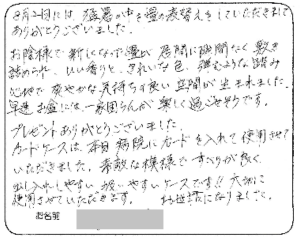 8月2日には、猛暑の中を畳の表替えをしていただきまして
ありがとうございました。
お陰様で新しくなった畳が居間に隙間なく敷き
詰められ、いい香りと、きれいな色、弾むような踏み
心地で爽やかな気持ち良い空間が生まれました。
早速お盆には一家団らんが楽しく過ごせそうです。
プレゼントありがとうございました。
カードケースは、本日病院にカードを入れて使用させて
いただきました。素敵な模様ですべりが良く、
出し入れしやすい、扱いやすいケースです!!大切に
使用させていただきます。お世話になりました。
お名前